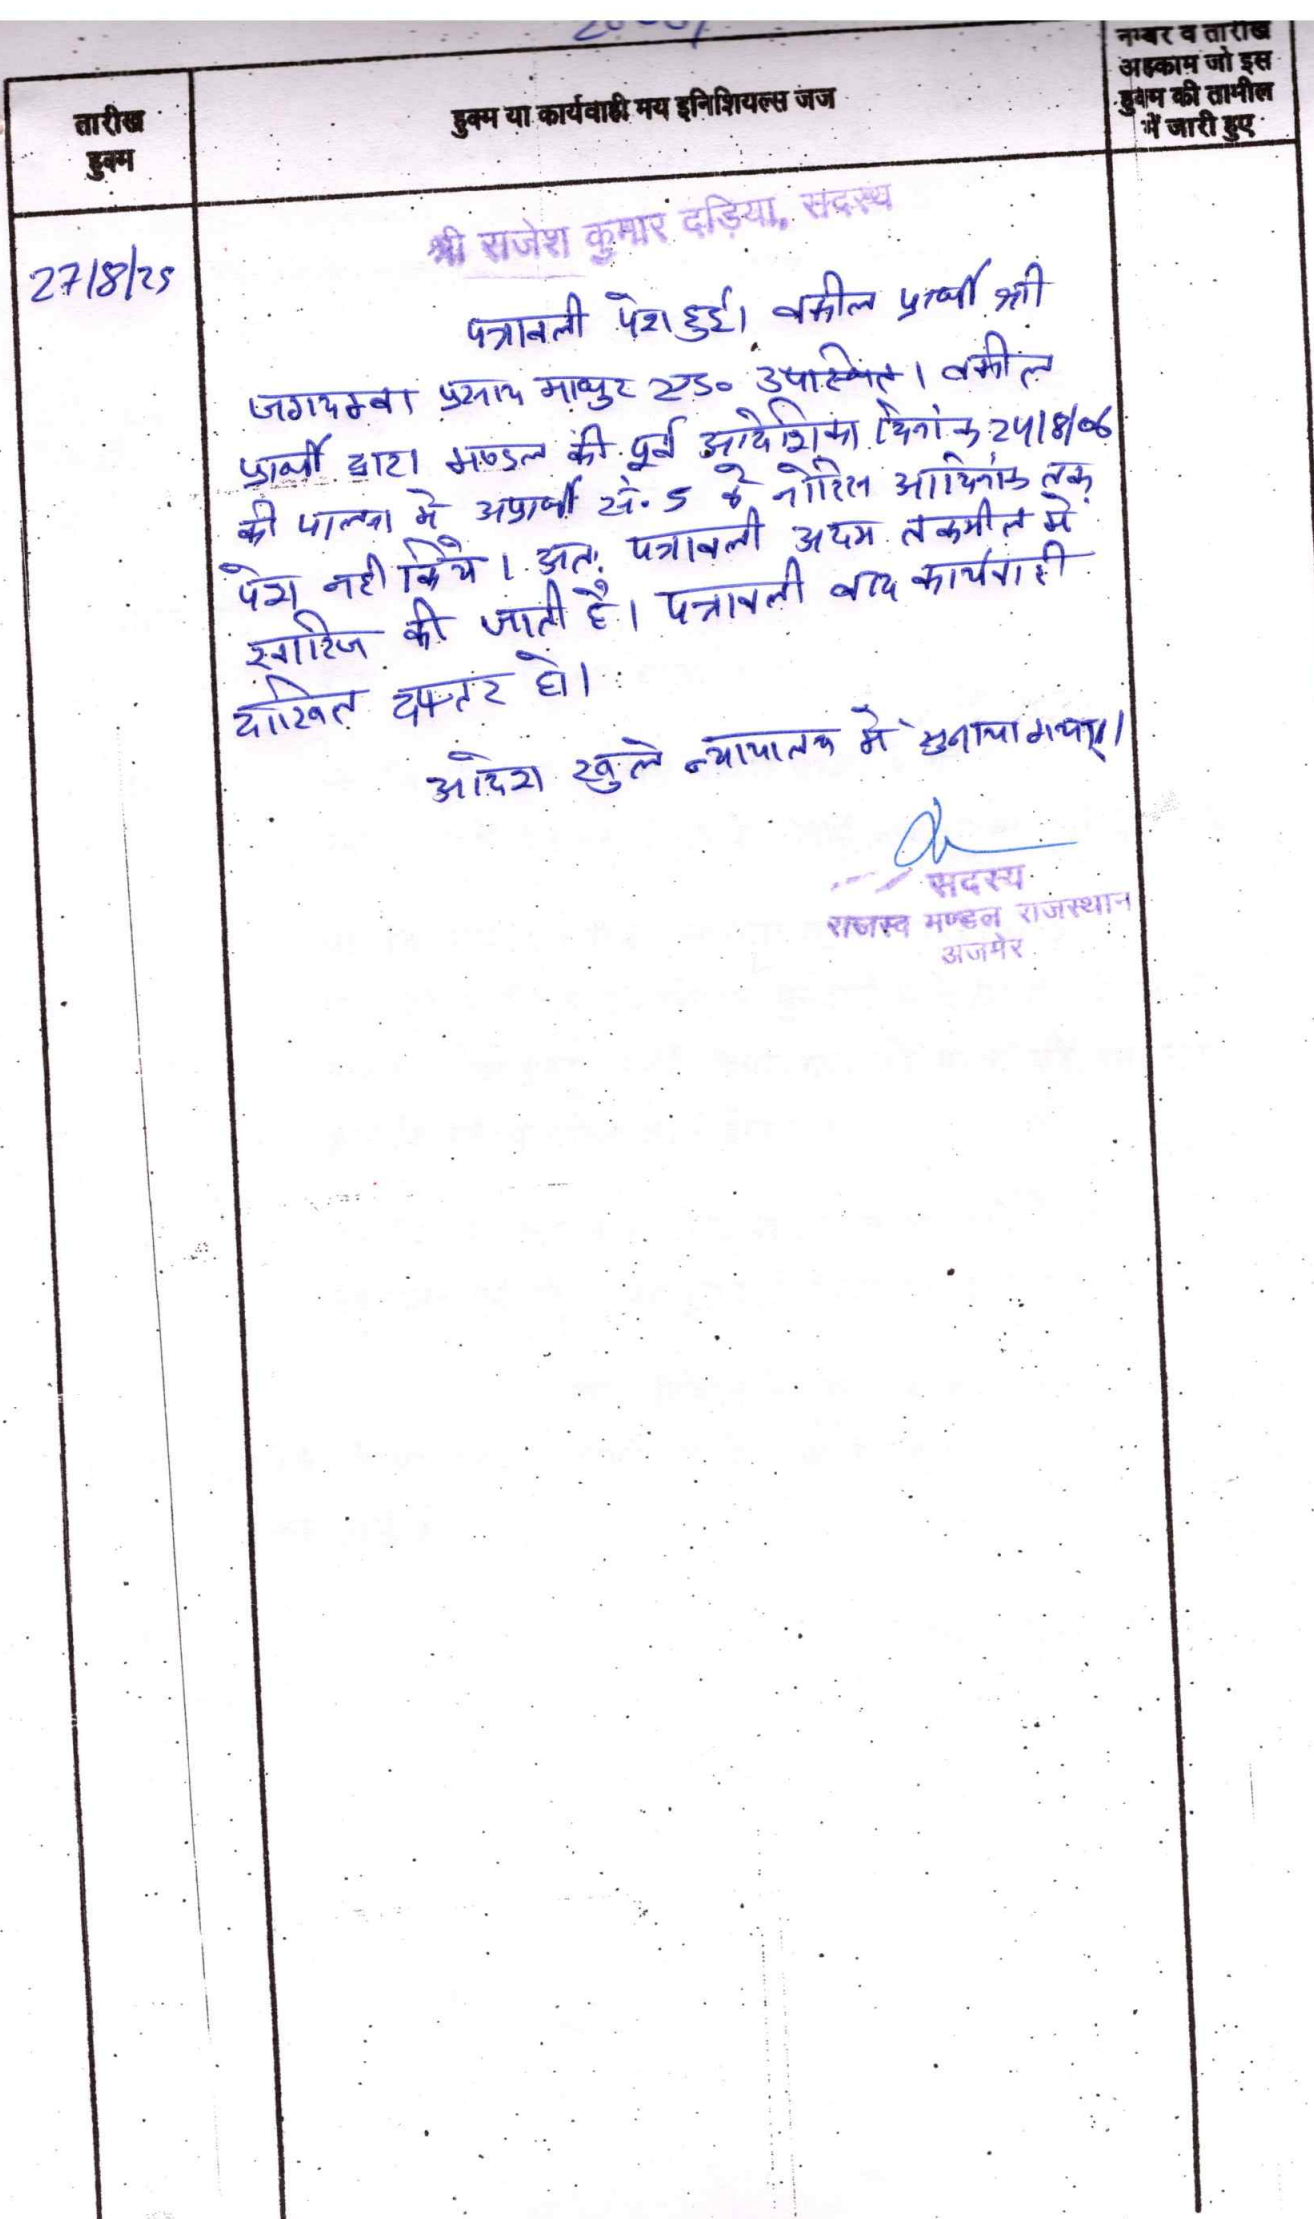 नम्बर व तारीख
अहकाम जो इस
हुक्म की तामील
में जारी हुए
तारीख
हुक्म
हुक्म या कार्यवाही मय इनिशियल्स जज
श्री राजेश कुमार दड़िया, सदस्य
27/8/25
पत्रावली पेश हुई। वकील प्रार्थी श्री
जगदम्बा प्रसाद माथुर एड० उपस्थित। वकील
प्रार्थी द्वारा मण्डल की पूर्व आदेशिका दिनांक 24/8/06
की पालना में अप्रार्थी सं. 5 के नोटिस आदिनांक तक
पेश नही किये। अतः पत्रावली अदम तकमील में
खारिज की जाती है। पत्रावली बाद कार्यवाही
दाखिल दफ्तर हो।
आदेश खुले न्यायालय में सुनाया गया।
सदस्य
राजस्व मण्डल राजस्थान
अजमेर